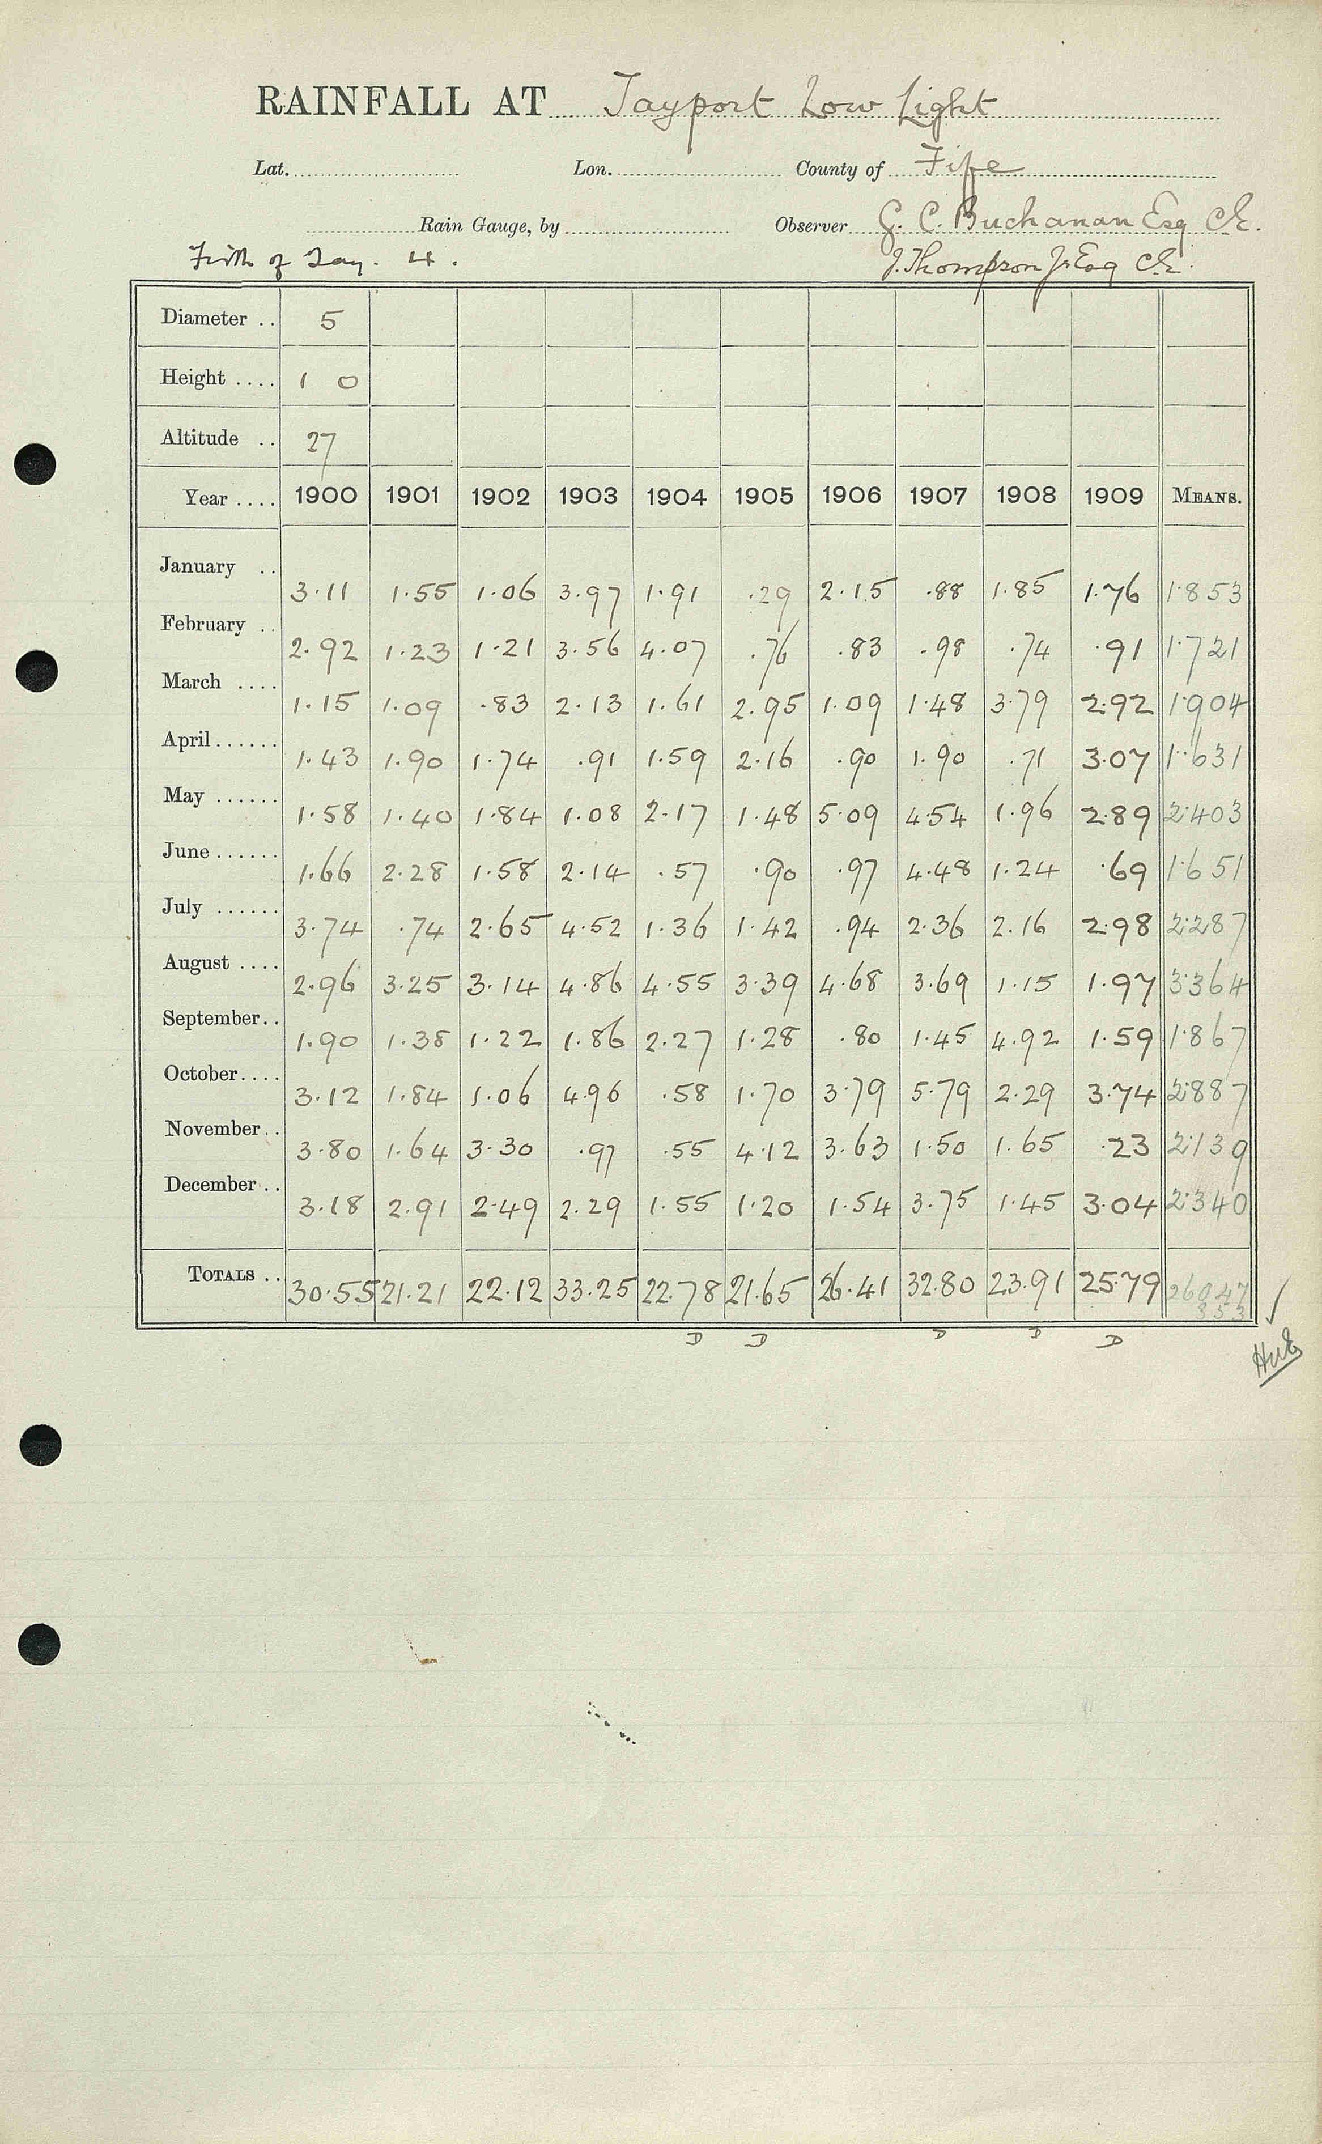 RAINFALL AT Tayport Low Light
Lat. Lon. County of Fife
Rain Gauge, by Observer G. C. Buchanan Esq C.E.
Firth of Tay. 4. J. Thompson Jr Esq C.E.
Diameter .. 5
Height .... 1 0
Altitude .. 27
Year .... 1900 1901 1902 1903 1904 1905 1906 1907 1908 1909 MEANS.
January .. 3.11 1.55 1.06 3.97 1.91 .29 2.15 .88 1.85 1.76 1.853
February .. 2.92 1.23 1.21 3.56 4.07 .76 .83 .98 .74 .91 1.721
March .... 1.15 1.09 .83 2.13 1.61 2.95 1.09 1.48 3.79 2.92 1.904
April ...... 1.43 1.90 1.74 .91 1.59 2.16 .90 1.90 .71 3.07 1.631
May ...... 1.58 1.40 1.84 1.08 2.17 1.48 5.09 4.54 1.96 2.89 2.403
June ...... 1.66 2.28 1.58 2.14 .57 .90 .97 4.48 1.24 .69 1.651
July ...... 3.74 .74 2.65 4.52 1.36 1.42 .94 2.36 2.16 2.98 2.287
August .... 2.96 3.25 3.14 4.86 4.55 3.39 4.68 3.69 1.15 1.97 3.364
September .. 1.90 1.38 1.22 1.86 2.27 1.28 .80 1.45 4.92 1.59 1.867
October .... 3.12 1.84 1.06 4.96 .58 1.70 3.79 5.79 2.29 3.74 2.887
November .. 3.80 1.64 3.30 .97 .55 4.12 3.63 1.50 1.65 .23 2.139
December .. 3.18 2.91 2.49 2.29 1.55 1.20 1.54 3.75 1.45 3.04 2.340
TOTALS .. 30.55 21.21 22.12 33.25 22.78 21.65 26.41 32.80 23.91 25.79 26.047
353
D D D D D